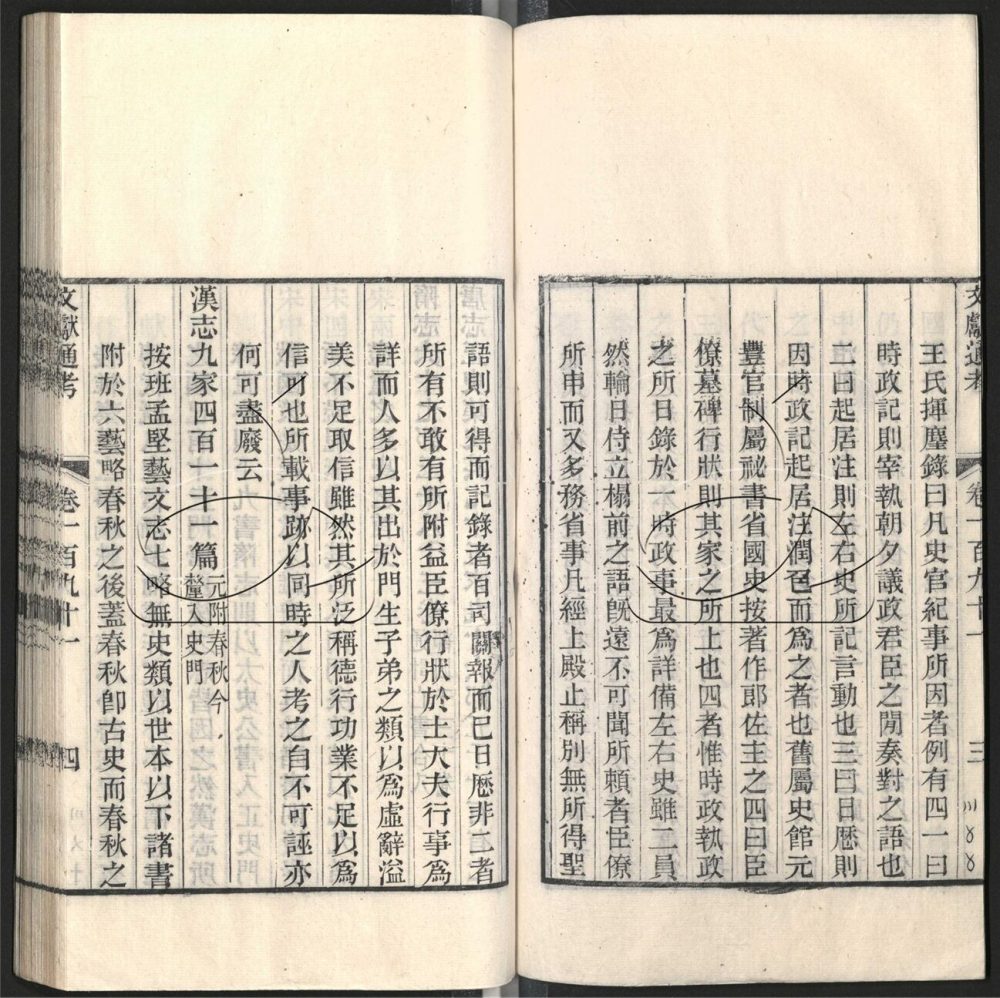 文獻通考　卷一百九十一　三
王氏揮麈錄曰凡史官紀事所因者例有四一曰
時政記則宰執朝夕議政君臣之閒奏對之語也
二曰起居注則左右史所記言動也三曰日厯則
因時政記起居注潤色而爲之者也舊屬史館元
豐官制屬祕書省國史按著作郎佐主之四曰臣
僚墓碑行狀則其家之所上也四者惟時政執政
之所日錄於一時政事最爲詳備左右史雖二員
然輪日侍立榻前之語旣遠不可聞所賴者臣僚
所申而又多務省事凡經上殿止稱別無所得聖
語則可得而記錄者百司關報而已日厯非二者
所有不敢有所附益臣僚行狀於士大夫行事爲
詳而人多以其出於門生子弟之類以爲虛辭溢
美不足取信雖然其所泛稱德行功業不足以爲
信可也所載事跡以同時之人考之自不可誣亦
何可盡廢云
漢志九家四百一十一篇元附春秋今
釐入史門
按班孟堅藝文志七略無史類以世本以下諸書
附於六藝略春秋之後蓋春秋卽古史而春秋之
文獻通考　卷一百九十一　四